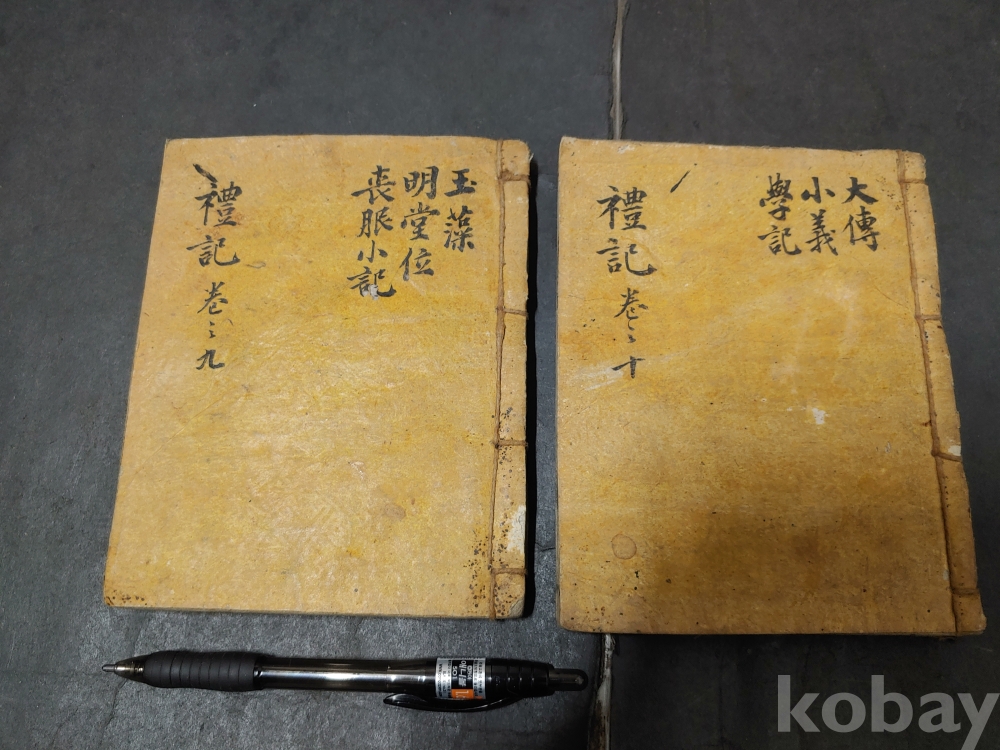 玉藻
明堂位
喪服小記
禮記 卷之九
大傳
小義
學記
禮記 卷之十
kobay